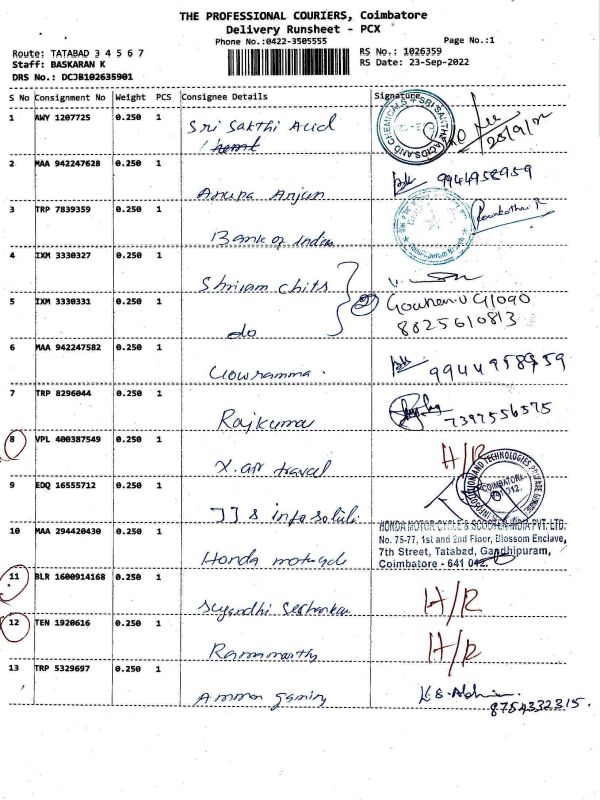 THE PROFESSIONAL COURIERS, Coimbatore
Delivery Runsheet - PCX
Phone No.:0422-3505555
Page No.:1
Route: TATABAD 3 4 5 6 7
RS No.: 1026359
Staff: BASKARAN K
RS Date: 23-Sep-2022
DRS No.: DCJB102635901
S No Consignment No Weight PCS Consignee Details Signature
1 AWY 1207725 0.250 1 Sri Sakthi Acid
2 MAA 942247628 0.250 1 Anupa Anjun 9944958959
3 TRP 7839359 0.250 1 Bank of India
4 IXM 3330327 0.250 1 Shriram Chits
5 IXM 3330331 0.250 1 do
8825610813
6 MAA 942247582 0.250 1 Gowramma 9944958959
7 TRP 8296044 0.250 1 Rajkumar 7397556575
8 VPL 400387549 0.250 1 X. air travel H/R
9 EDQ 16555712 0.250 1
10 MAA 294420430 0.250 1 Honda
HONDA MOTOR CYCLE & SCOOTER INDIA PVT. LTD.
No. 75-77, 1st and 2nd Floor, Blossom Enclave,
7th Street, Tatabad, Gandhipuram,
Coimbatore - 641 012.
11 BLR 1600914168 0.250 1 H/R
12 TEN 1920616 0.250 1 H/R
13 TRP 5329697 0.250 1 Amman
8754332315.